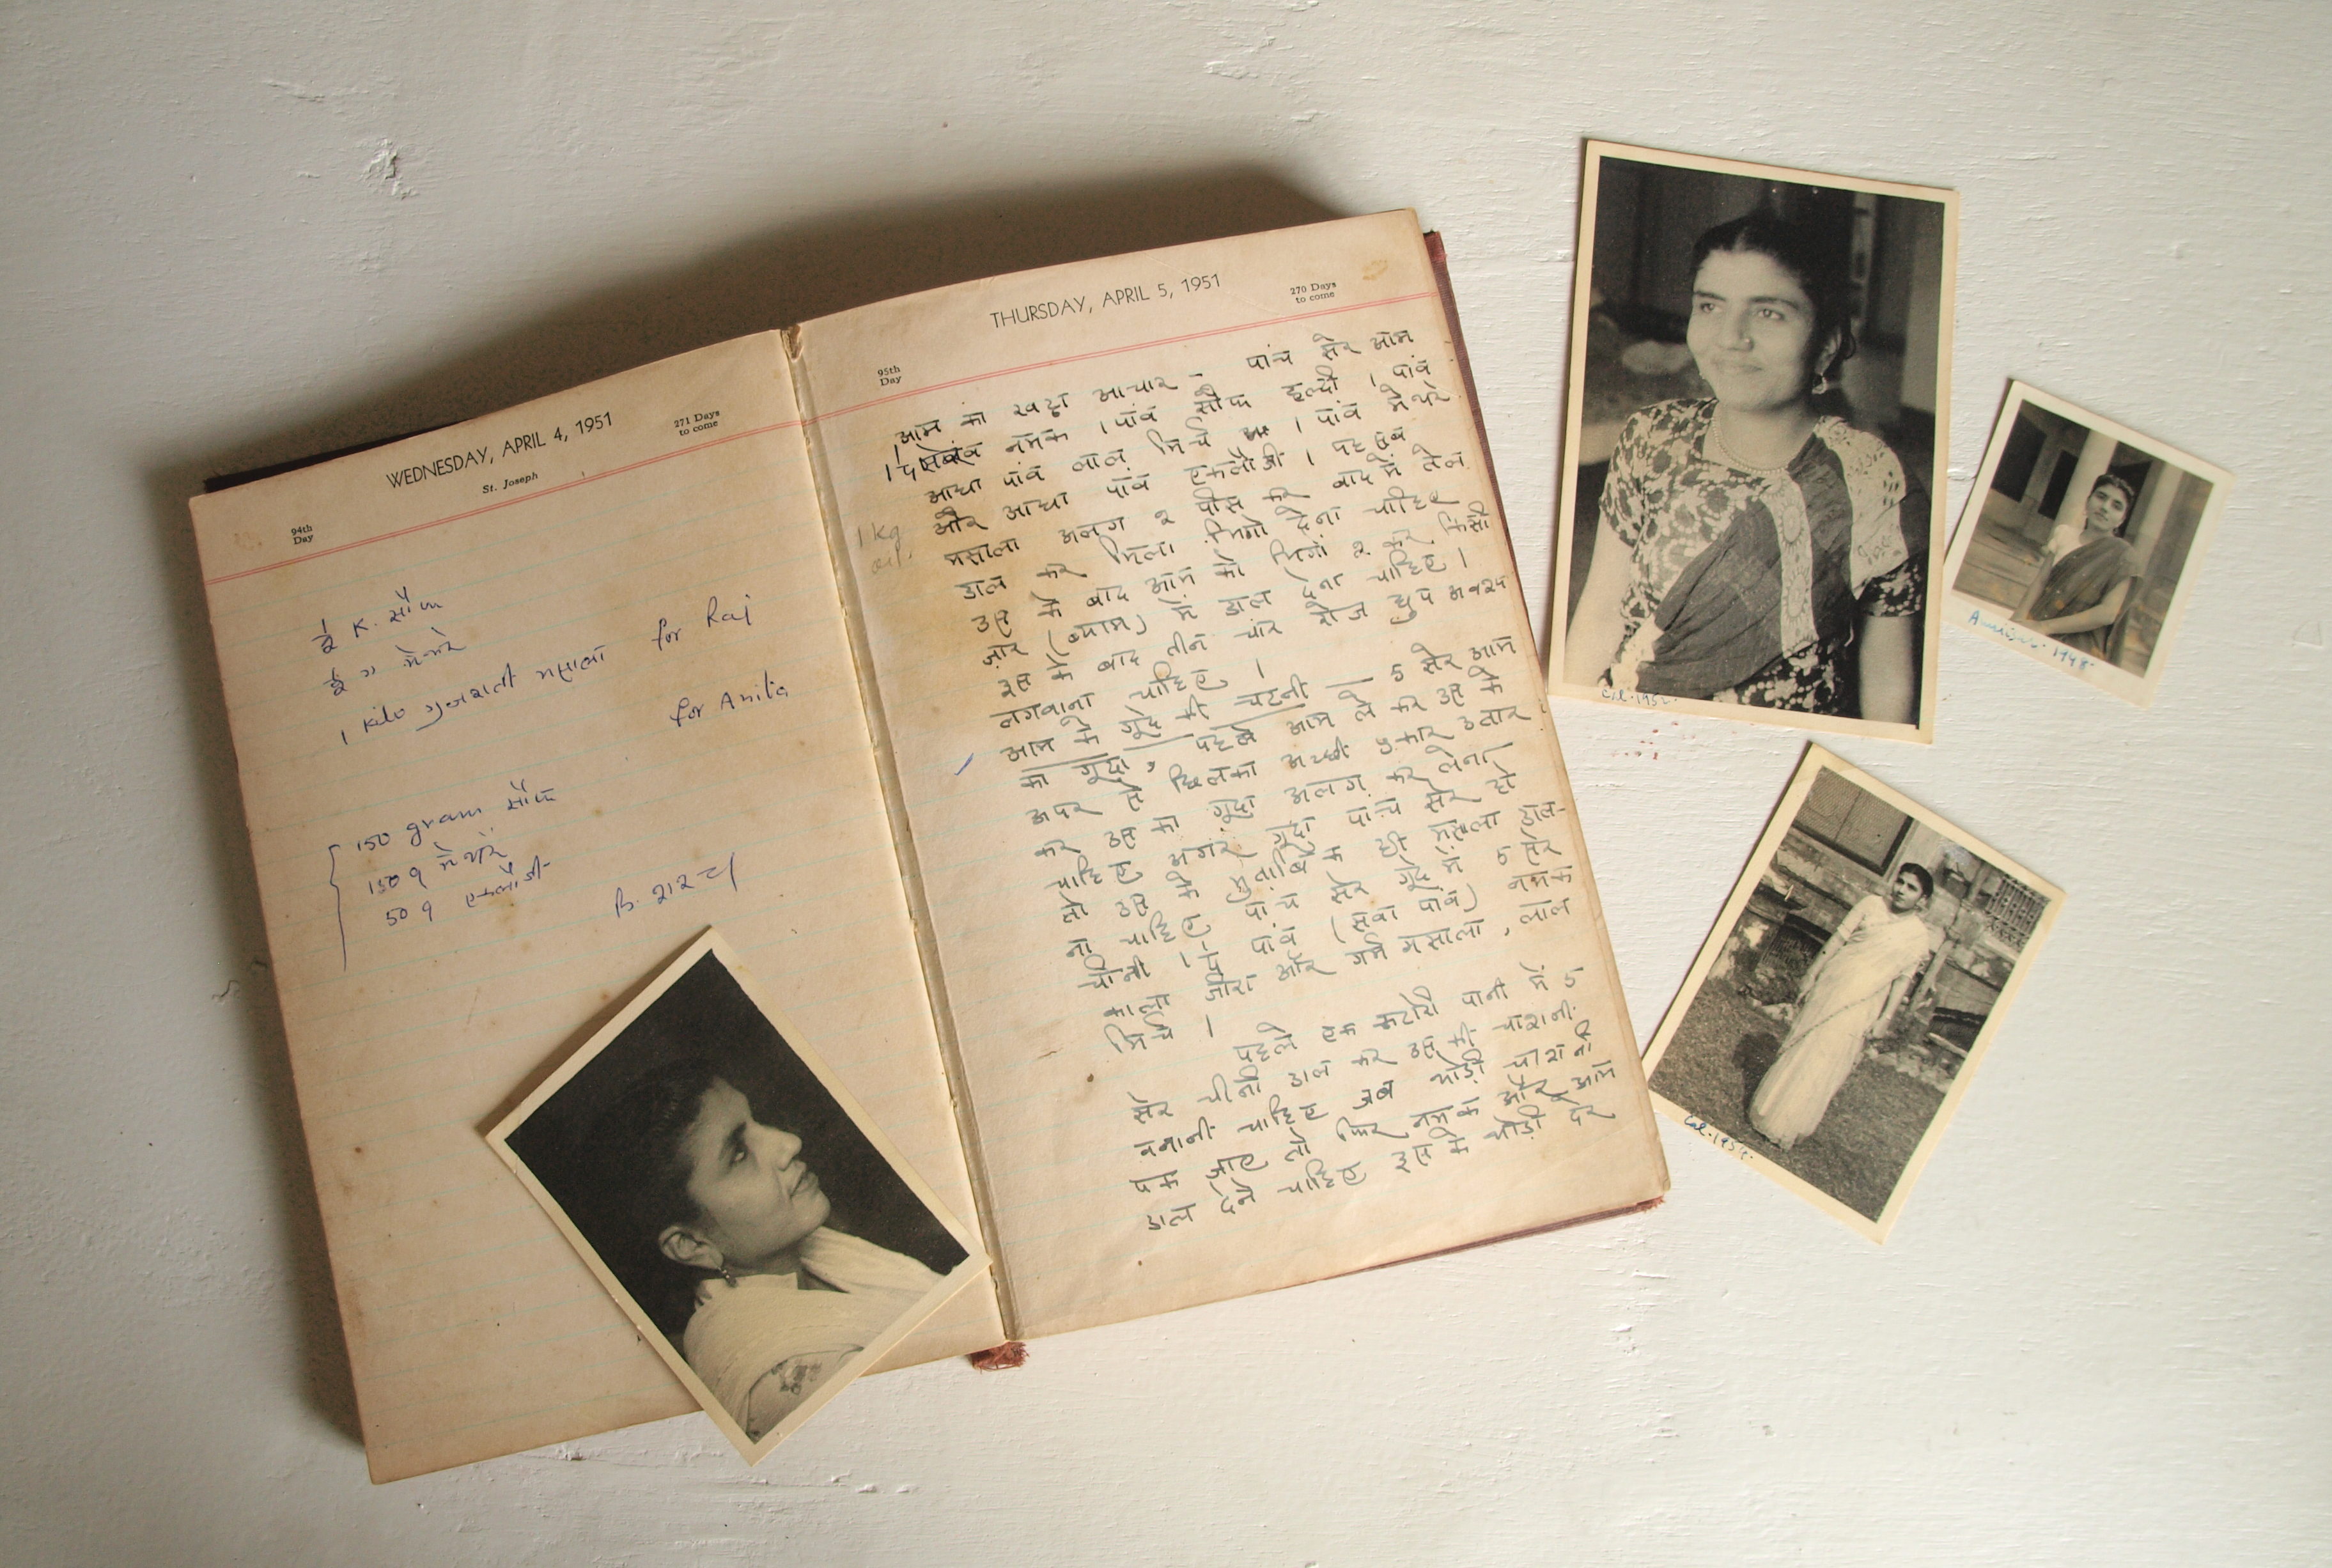 WEDNESDAY, APRIL 4, 1951
St. Joseph
94th
Day
271 Days
to come
½ K. सौंफ
½ " मेथरे
1 Kilo गुजराती मसाला for Raj
for Anita
150 gram सौंफ
150 g मेथरे
50 g कलौंजी
THURSDAY, APRIL 5, 1951
95th
Day
270 Days
to come
1 kg
oil.
आम का खट्टा आचार - पांच सेर आम
1 पाव नमक 1 पांव सौंफ हल्दी 1 पांव
आधा पांव लाल मिर्च 1 पांव मेथरे
और आधा पांव कलौंजी । यह सब
मसाला अलग २ पीस कर बाद में तेल
डाल कर मिला भिगो देना चाहिए
उस के बाद आम को भिगो २ कर किसी
जार (ब्याम) में डाल देना चाहिए ।
इस के बाद तीन चार रोज धुप अवश्य
लगवाना चाहिए ।
आम के गुद्दे की चटनी । 5 सेर आम
का गुद्दा, पहले आम ले कर उस के
उपर से छिलका अच्छी प्रकार उतार
कर उस का गुद्दा अलग कर लेना
चाहिए अगर गुद्दा पांच सेर हो
तो उस के मुताबिक ही मसाला डाल-
ना चाहिए पांच सेर गुद्दे में 5 सेर
चीनी पांव (सवा पांव) नमक
काला जीरा और गर्म मसाला, लाल
मिर्च ।
पहले एक कटोरी पानी में 5
सेर चीनी डाल कर उस की चाशनी
बनानी चाहिए जब थोड़ी चाशनी
पक जाए तो फिर नमक और आम
डाल देने चाहिए इस के थोड़ी देर
1948
Cal. 1954.